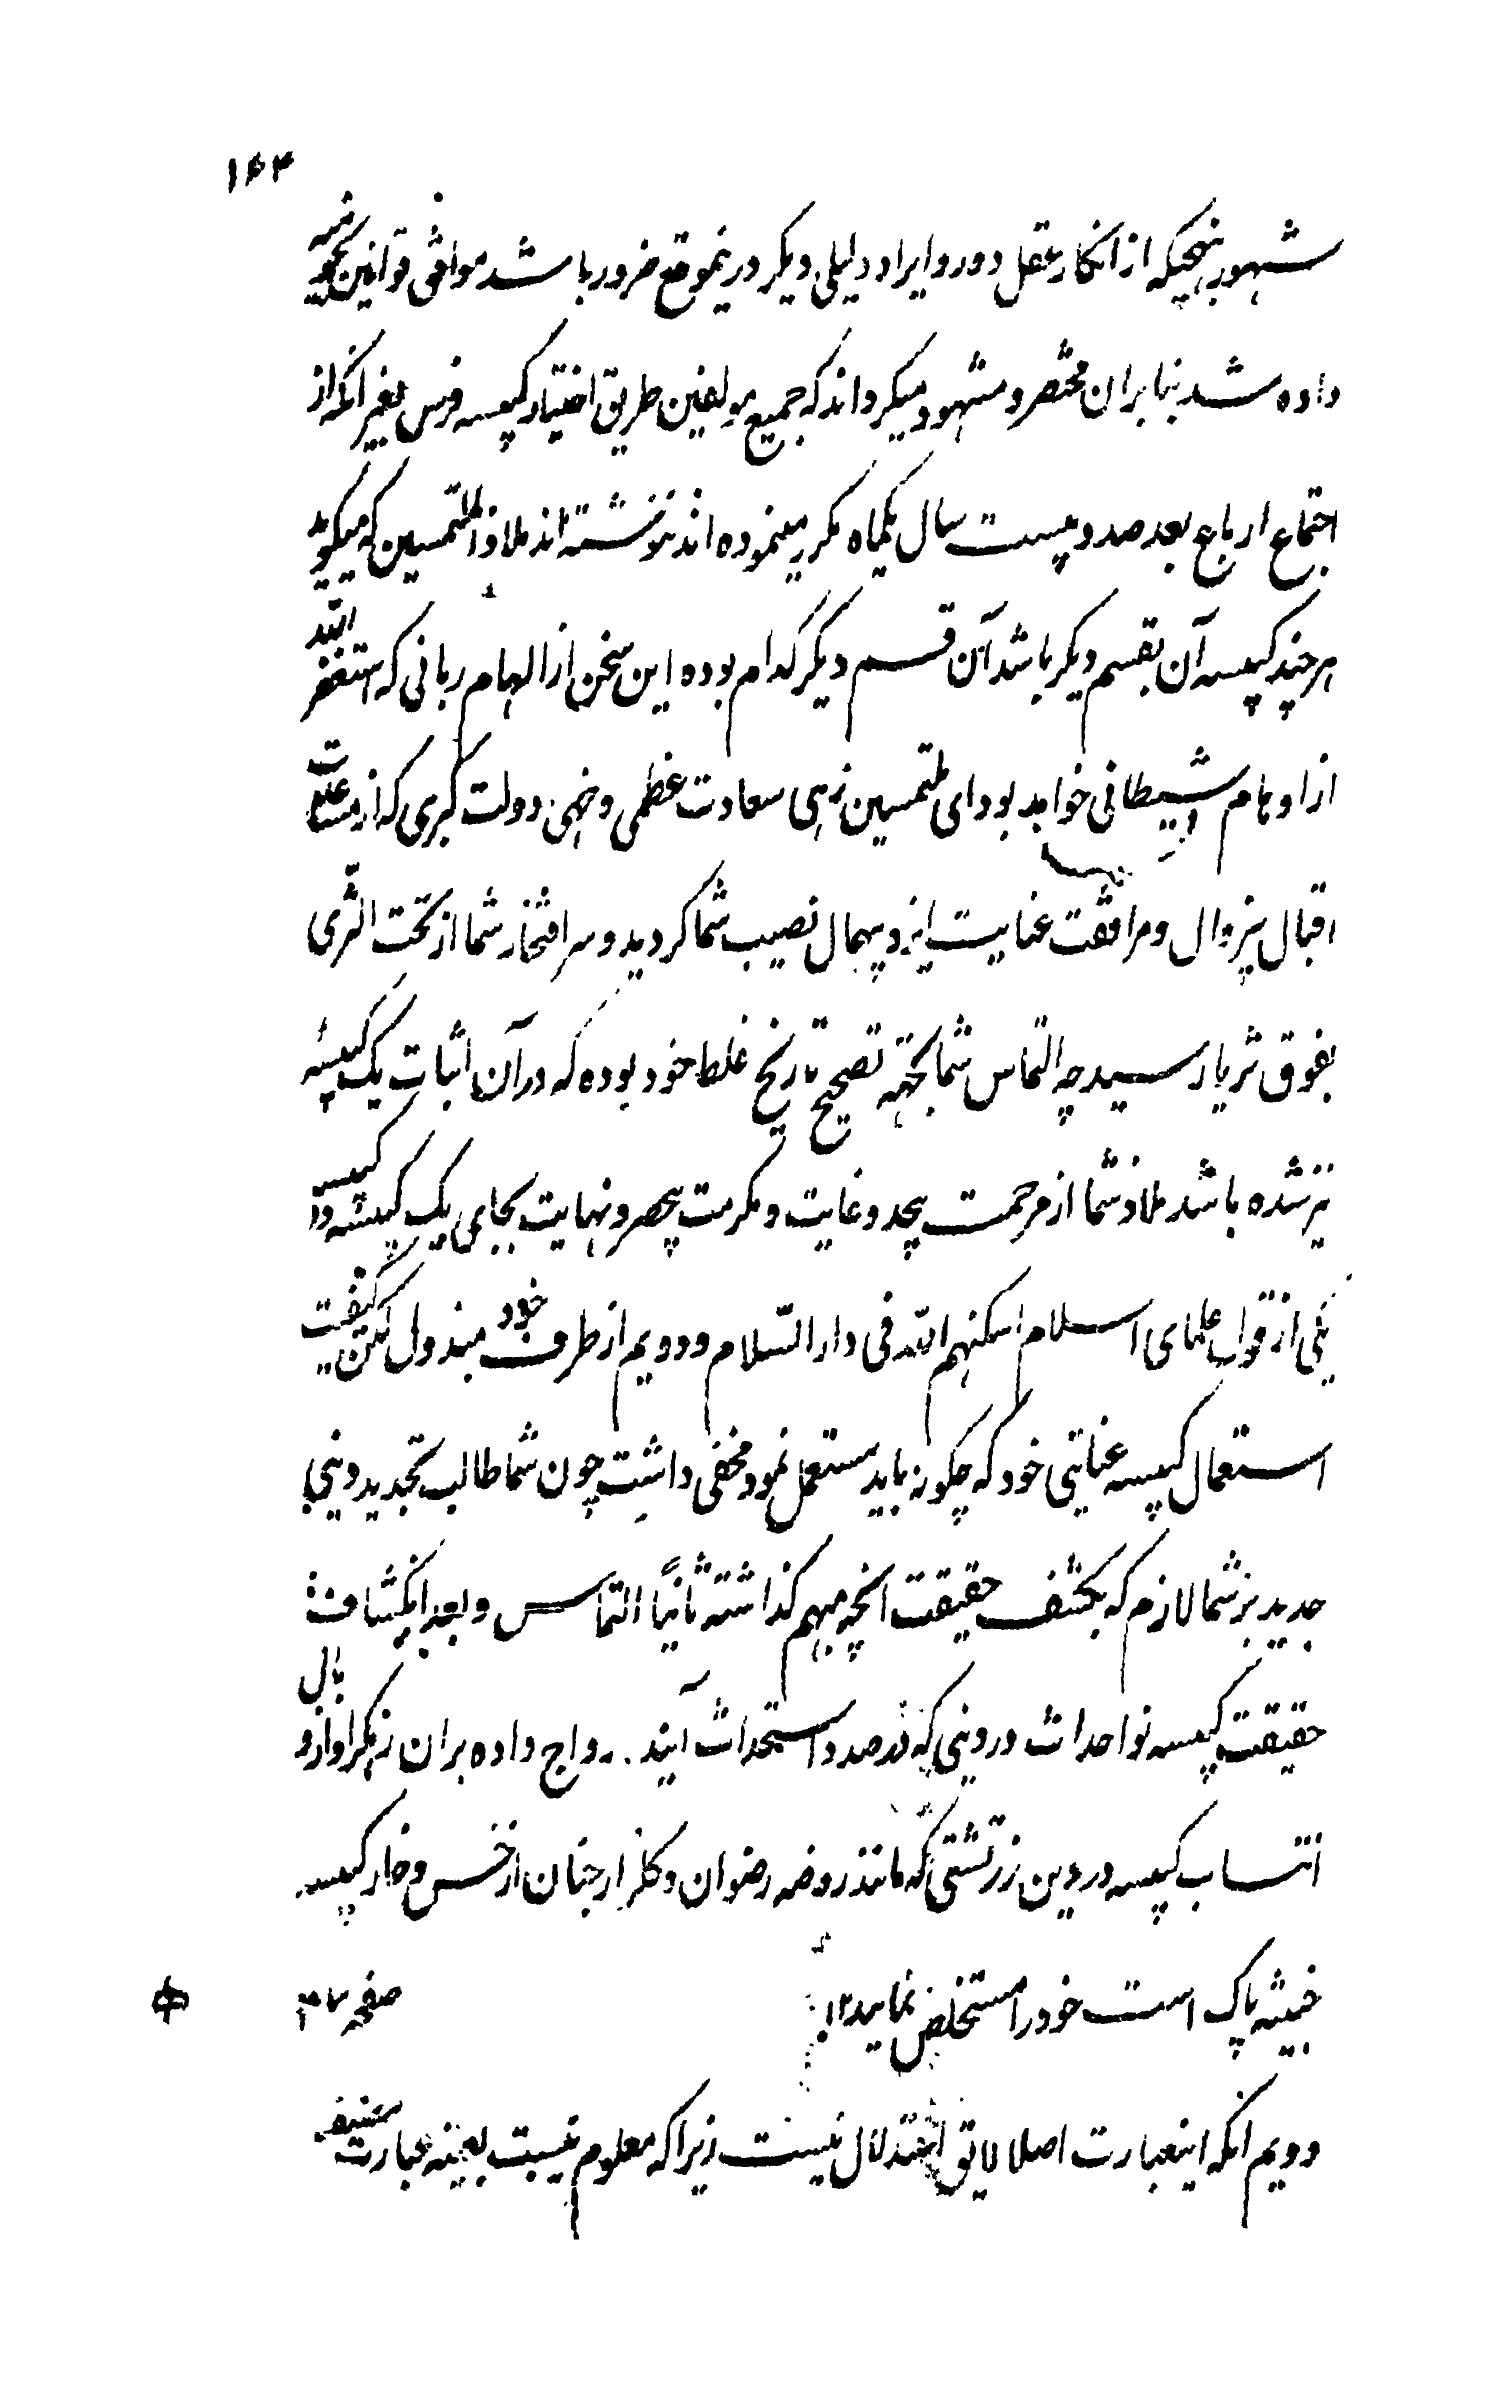 ۱۶۴
شهور بنهجیکه از انکار عقل دور و ایراد دلیلی دیگر درینموقع ضرور باشد موافق قوانین
داده شد بنابران مختصر و مشهود میگرداند که جمیع مولفین طریق اختیار کبیسه فرس بغیر انکه از
اجتماع ارباع بعد صد و بیست سال یکماه مکرر مینموده اند ننوشته اند ملاذ الملتمسین که میگوید
هر چند کبیسه آن بقسم دیگر باشد آن قسم دیگر کدام بوده این سخن از الهام ربانی که استغفر الله
از اوهام شیطانی خواهد بود ای ملتمسین زهی سعادت عظمی و خهی دولت کبری که از
اقبال بیزوال و مرافقت عنایت ایزد بیهمال نصیب شما گردید و سر افتخار شما از تحت الثری
بفوق ثریا رسید چه التماس شما بجهته تصحیح تاریخ غلط خود بوده که در آن اثبات یک کبیسه
نیز شده باشد ملاذ شما از مرحمت بیحد و غایت و مکرمت بیحصر و نهایت بجای یک کبیسه دو کبیسه
یکی از قول علمای اسلام اسکنهم الله فی دار السلام و دویم از طرف خود مبذول لیکن کیفیت
استعمال کبیسه عنایتی خود که چگونه باید مستعمل نمود مخفی داشت چون شما طالب تجدید دینی
جدید بر شما لازم که بکشف حقیقت انچه مبهم گذاشته ثانیا التماس و بعد انکشاف
حقیقت کبیسه نو احداث در دینی که درصدد استحداث آنید رواج داده بران
انتساب کبیسه در دین زرتشتی که مانند روضه رضوان و گلزار جنان از خس و خار کبیسه
خبیثه پاک است خود را مستخلص نمایید ۱۲
صفحه ۳۷
دویم انکه اینعبارت اصلا لایق استدلال نیست زیرا که معلوم نیست بعینه عبارت مصنف